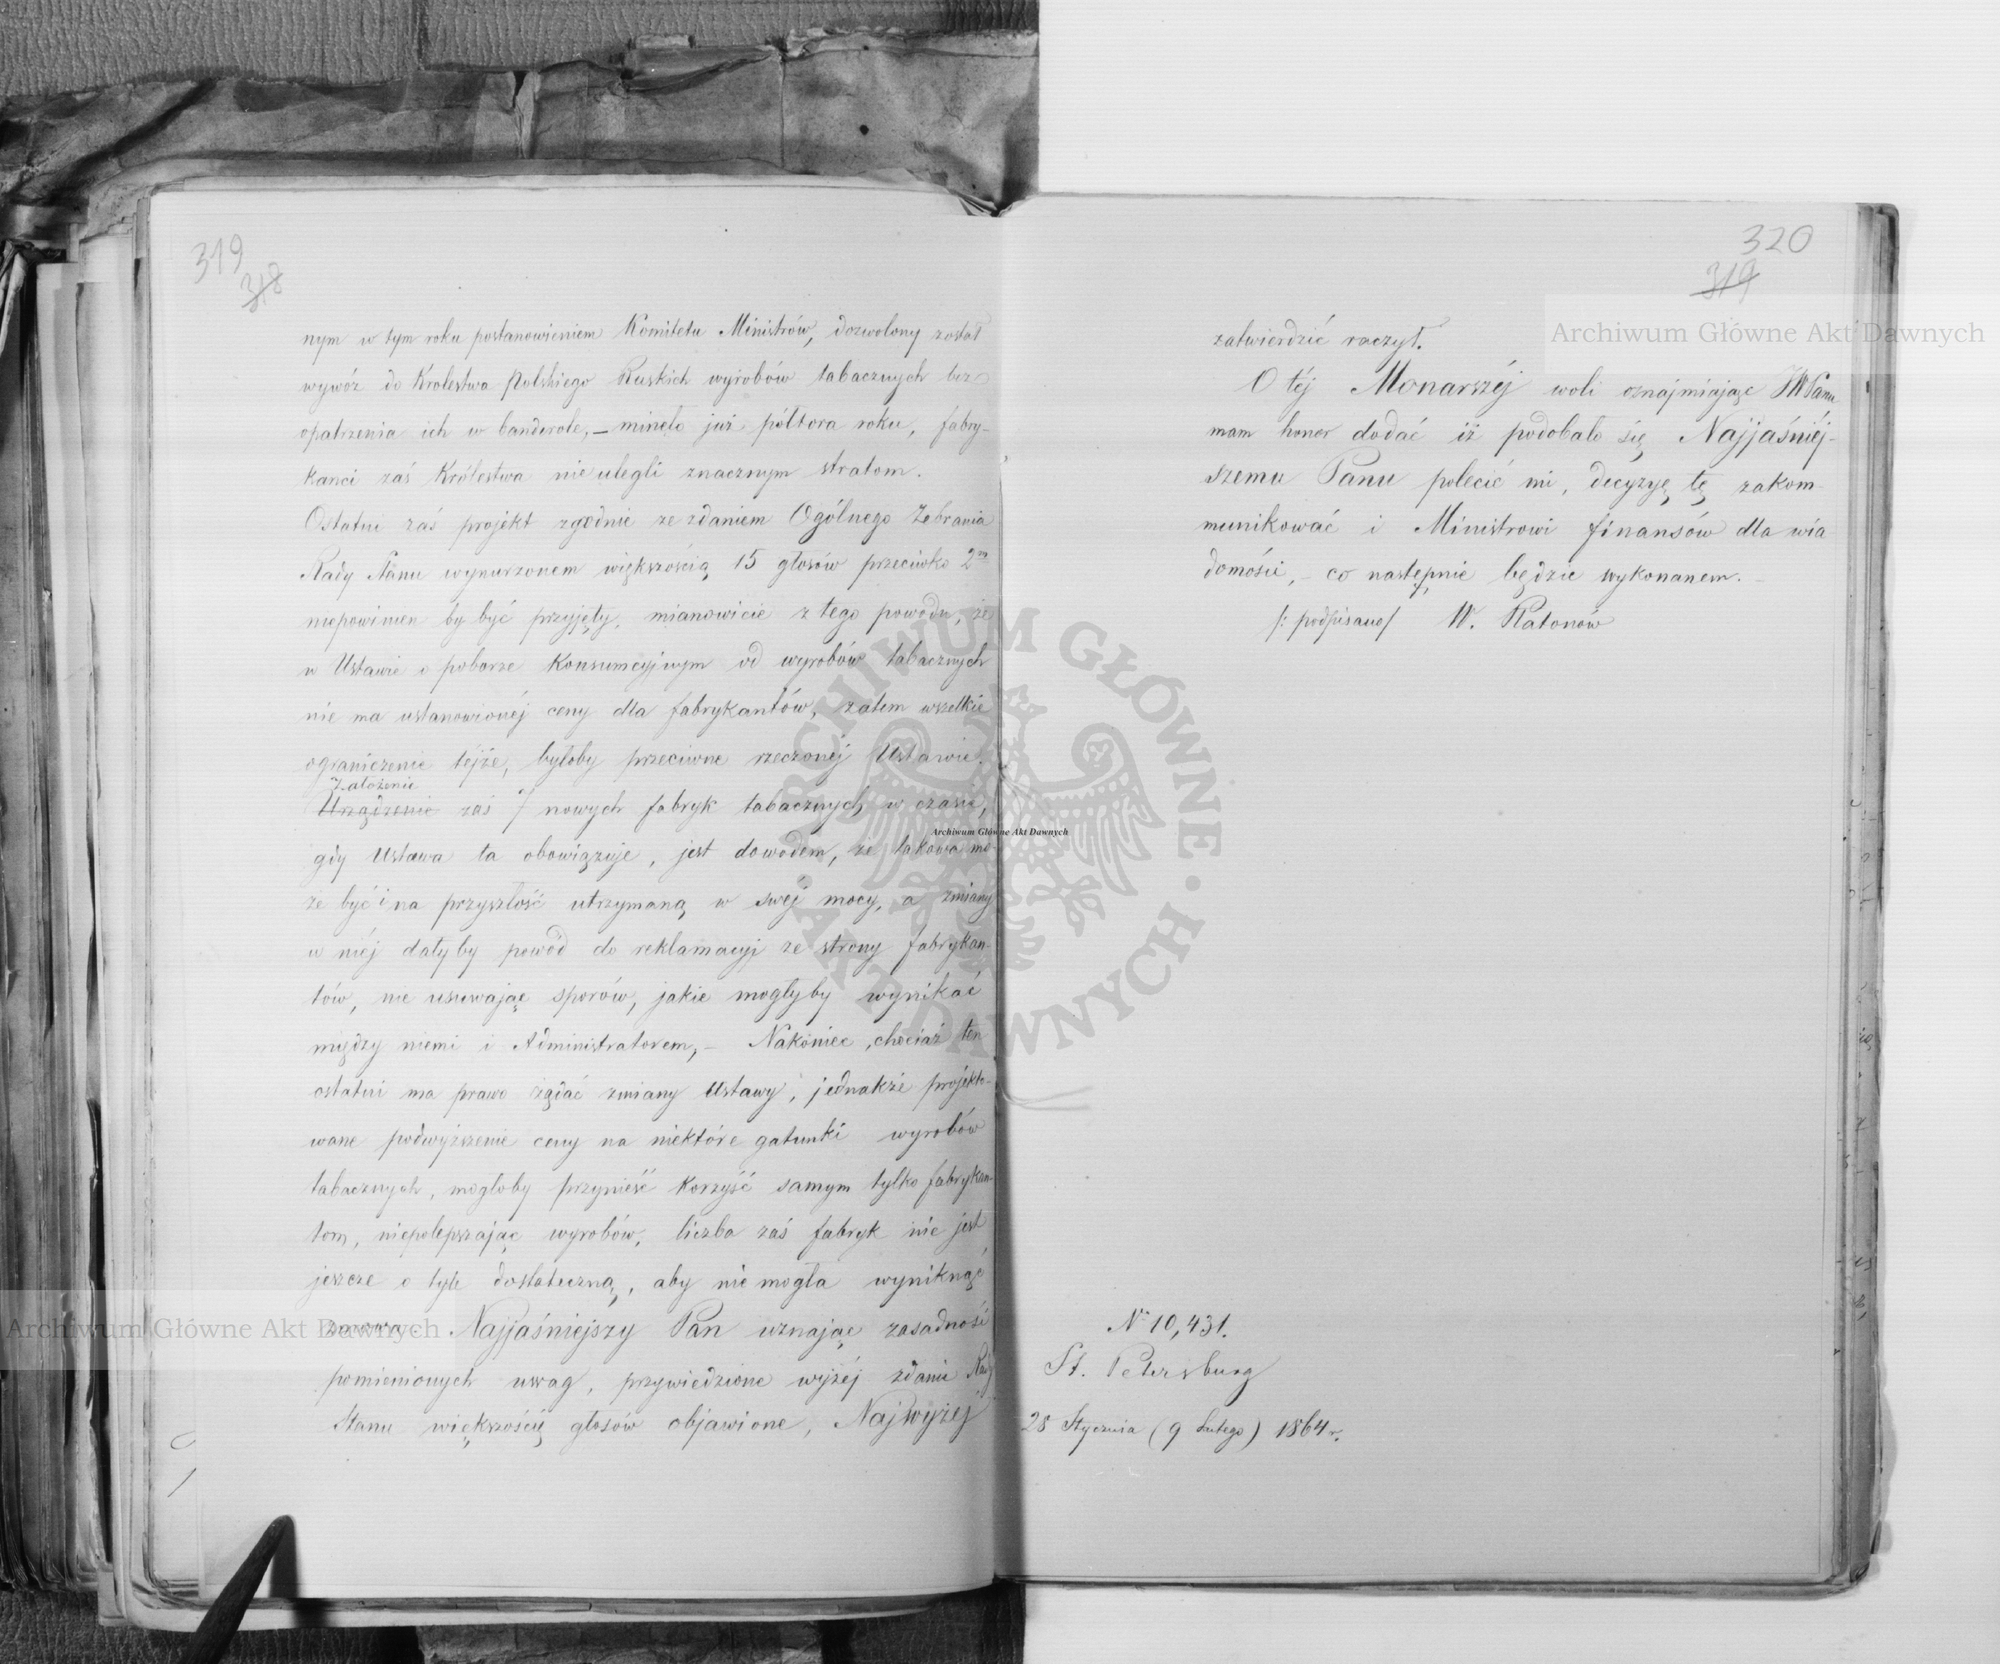 319
318
nym w tym roku postanowieniem Komitetu Ministrów, dozwolony został
wywóz do Krolestwa Polskiego Ruskich wyrobów tabacznych bez
opatrzenia ich w banderole, – mineło już półtora roku, fabry-
kanci zaś Królestwa nie ulegli znacznym stratom.
Ostatni zaś projekt zgodnie ze zdaniem Ogólnego Zebrania
Rady Stanu wynurzonem większością 15 głosów przeciwko 2m
niepowinien by być przyjęty, mianowicie z tego powodu, że
w Ustawie o poborze Konsumcyjnym od wyrobów tabacznych
nie ma ustanowionéj ceny dla fabrykantów, zatem wszelkie
ograniczenie téjże, byłoby przeciwne rzeczonéj Ustawie.
Założenie
Urządzenie zaś 7 nowych fabryk tabacznych w czasie,
gdy Ustawa ta obowiązuje, jest dowodem, że takowa mo-
że być i na przyszłość utrzymaną w swéj mocy, a zmiany
w niéj dałyby powód do reklamacyj ze strony fabrykan-
tów, nie usuwając sporów, jakie mogłyby wynikać
między niemi i Administratorem, – Nakoniec, chociaż ten
ostatni ma prawo żądać zmiany Ustawy, jednakże projekto-
wane podwyższenie ceny na niektóre gatunki wyrobów
tabacznych, mogłoby przynieść korzyść samym tylko fabrykan-
tom, niepolepszając wyrobów, liczba zaś fabryk nie jest
jeszcze o tyle dostateczną, aby nie mogła wyniknąć
zmowa. Najjaśniejszy Pan uznając zasadność
pomienionych uwag, przywiedzione wyżéj zdanie Rady
Stanu większością głosów objawione, Najwyżéj
320
319
zatwierdzić raczył.
O téj Monarszéj woli oznajmiając JWPanu
mam honor dodać iż podobało się Najjaśniéj-
szemu Panu polecić mi, decyzyę tę zakom-
munikować i Ministrowi finansów dla wia
domości, – co następnie będzie wykonanem. –
/: podpisano/ W. Płatonów
N° 10,431.
St. Petersburg
28 Stycznia (9 Lutego) 1864 r.
Archiwum Główne Akt Dawnych
Archiwum Główne Akt Dawnych
Archiwum Główne Akt Dawnych
ARCHIWUM GŁÓWNE · AKT DAWNYCH ·